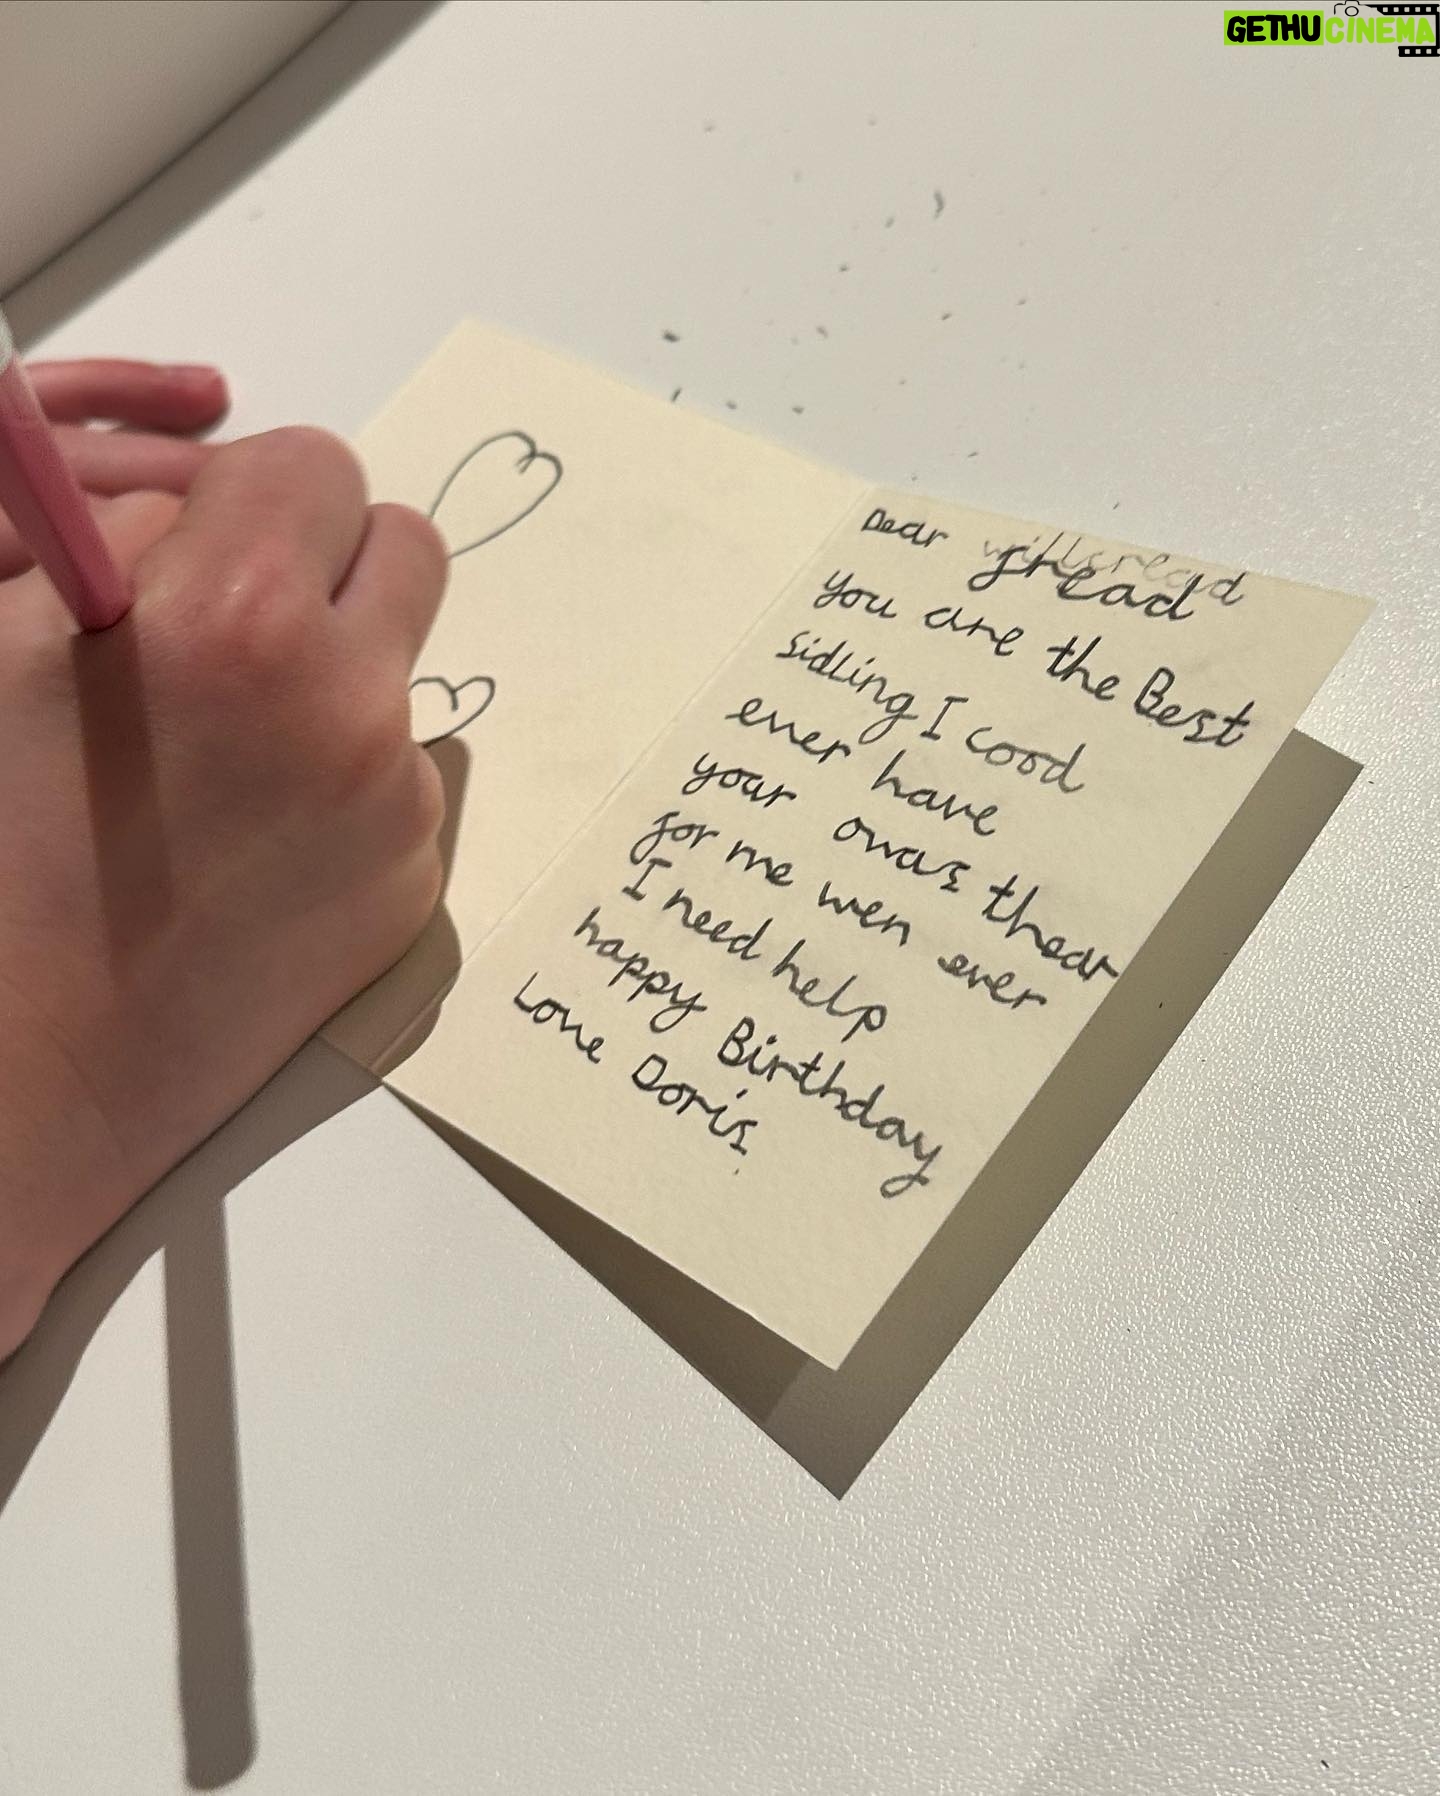 GETHUCINEMA
Dear
you are the Best
sidling I cood
ever have
your owas thear
for me wen ever
I need help
happy Birthday
Love Doris